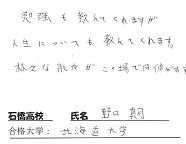 勉強も教えてくれますが
人生についても教えてくれます。
様々な能力がこの場で身に付けます
石橋高校 氏名 野口 真司
合格大学: 北海道大学